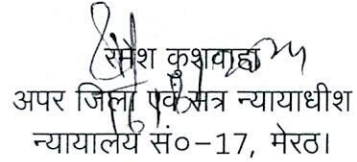 रमेश कुशवाहा
अपर जिला एवं सत्र न्यायाधीश
न्यायालय सं०–17, मेरठ।